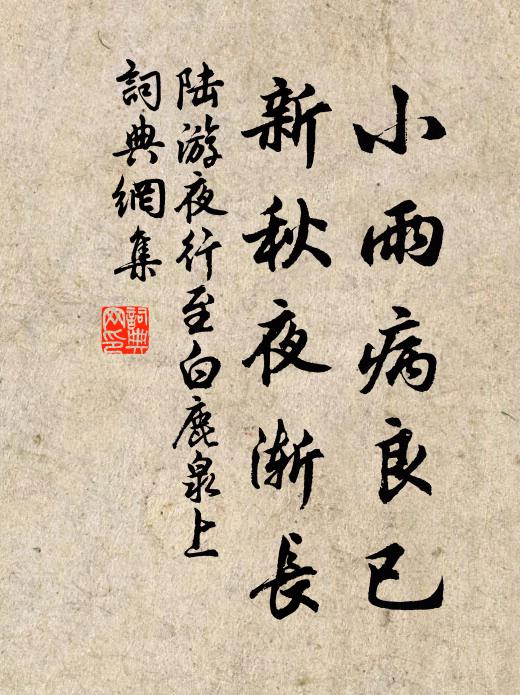 小雨病良已
新秋夜渐長
陆游夜行至白鹿泉上
詞典網集
詞典
网印